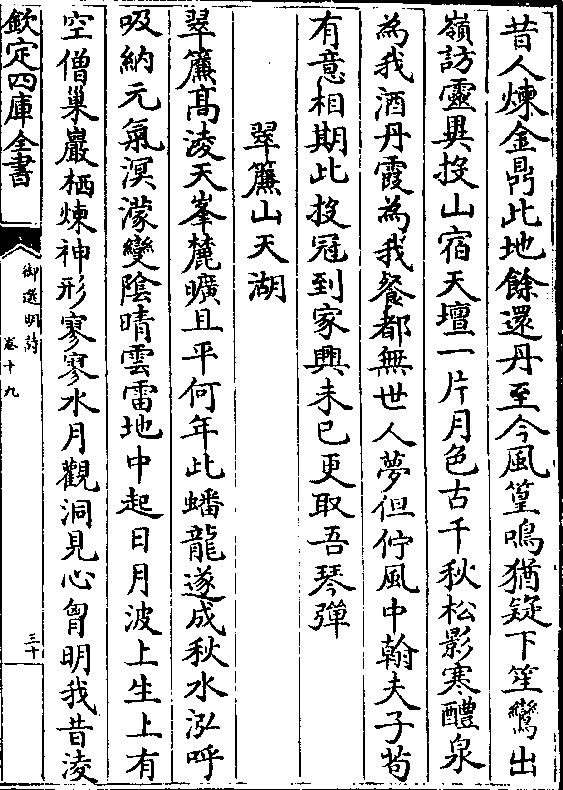 昔人煉金鼎此地餘還丹至今風篁鳴猶疑下笙鸞出
嶺訪靈異投山宿天壇一片月色古千秋松影寒醴泉
為我酒丹霞為我餐都無世人夢但佇風中翰夫子茍
有意相期此投冠到家興未已更取吾琴彈
翠簾山天湖
翠簾髙淩天峯麓曠且平何年此蟠龍遂成秋水泓呼
吸納元氣溟濛變陰晴雲雷地中起日月波上生上有
空僧巢巖栖煉神形寥寥水月觀洞見心胷明我昔淩
欽定四庫全書
御選明詩
卷十九
三十